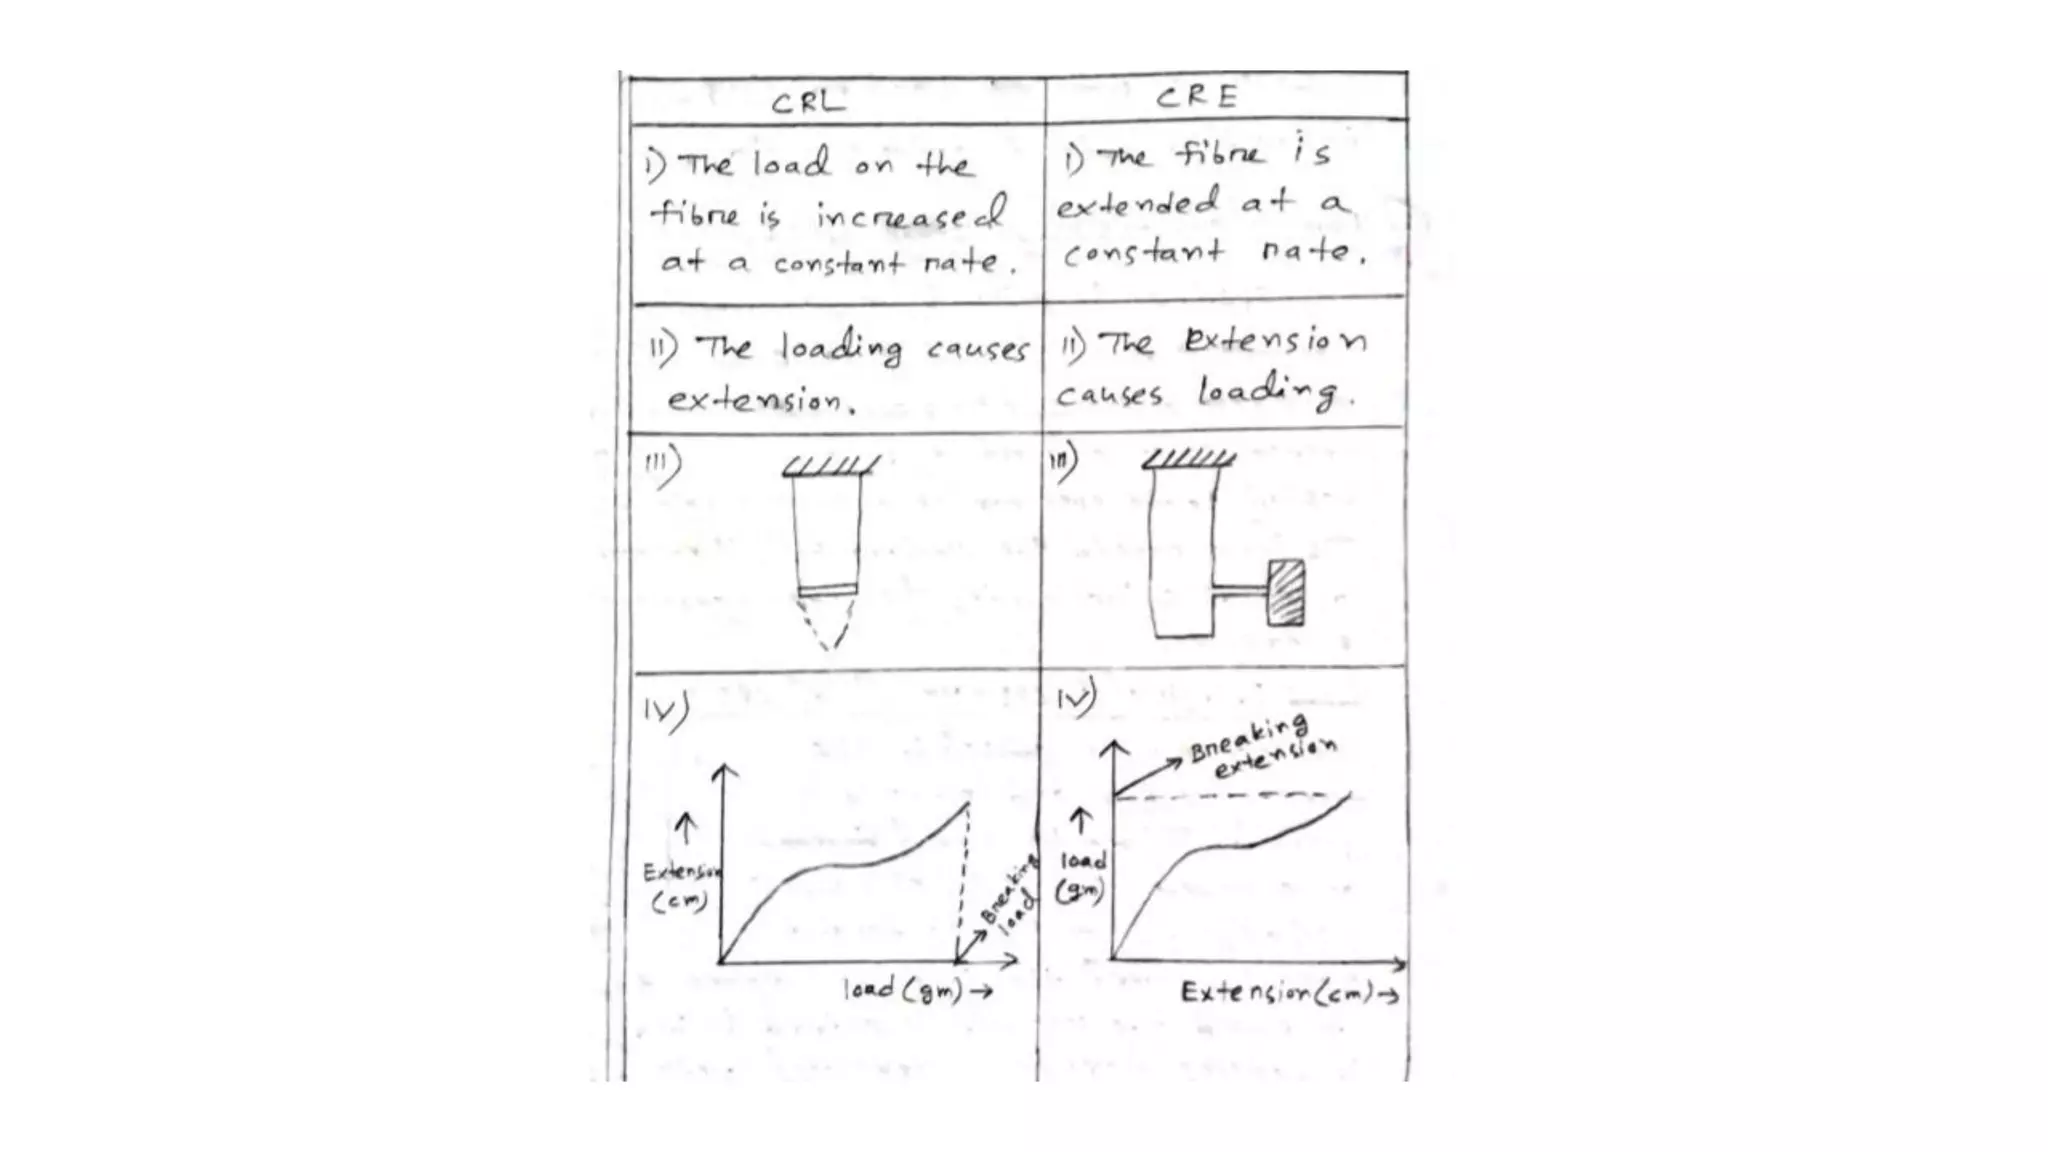 CRL
CRE
i) The load on the
fibre is increased
at a constant rate.
i) The fibre is
extended at a
constant rate.
ii) The loading causes
extension.
ii) The Extension
causes loading.
iii)
iii)
iv)
Extension
(cm)
Breaking
load
load (gm) →
iv)
Breaking
extension
load
(gm)
Extension (cm) →